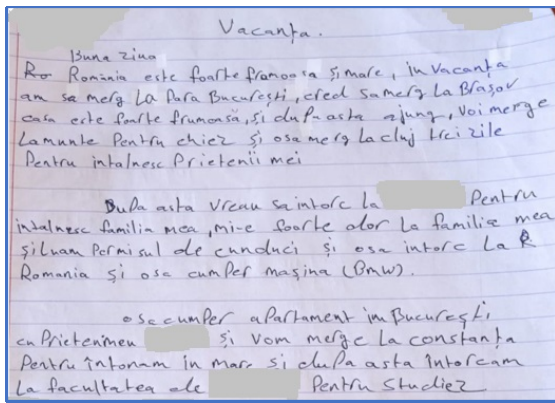 Vacanța.
Buna ziua
Ro România este foarte frumoasa și mare, in vacanța
am sa merg La Para București, cred sa merg La Brașov
casa este foarte frumoasă, și dupa asta ajung, voi merge
La munte Pentru chiez și osa merg la cluj trei zile
Pentru intalnesc Prietenii mei
Dupa asta vreau sa intorc la Pentru
intalnesc familia mea, mi-e foarte dor La familia mea
și luam Permisul de cunduci și osa intorc La R
Romania și osa cumPer mașina (Bmw).
ose cumper apartament im București
cu Prietenmeu și vom merge La constanța
Pentru întonam in mare și dupa asta întorcam
La facultatea de Pentru studiez